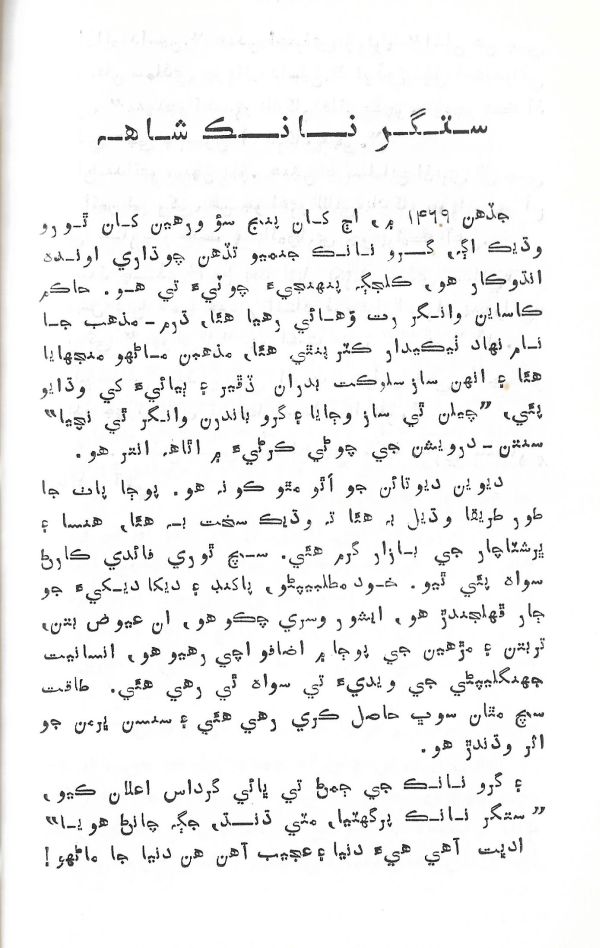 ستگر نانڪ شاھ
جڏهن ١٤٦٩ ۾، اڄ کان پنج سؤ ورهين کان ٿورو
وڌيڪ اڳ، گرو نانڪ جنميو تڏهن چوڌاري اونده
انڌوڪار هو، ڪلجڳ پنهنجيءَ چوٽيءَ تي هو. حاڪم
ڪاساين وانگر رت وهائي رهيا هئا، ڌرم ـ مذهب جا
نام نهاد ٺيڪيدار ڪٽر پنٿي هئا، مذهبين ماڻهو منجهايا
هئا ۽ انهن ساڙ سلوڪت بدران ڦڦير ۽ ٻيائيءَ کي وڌايو
پئي، ”چيلن ٿي ساز وڄايا ۽ گرو باندرن وانگر ٿي نچيا“
سنتن ـ درويشن جي چوڻي ڪرڻيءَ ۾ اڻاھ انتر هو.
ديوين ديوتائن جو اَنٿو مٿو ڪونہ هو. پوڄا پاٺ جا
طور طريقا وڌيل بہ هئا تہ وڌيڪ سخت بہ هئا، هنسا ۽
ڀرشٽاچار جي بازار گرم هئي. سچ ٿوري فائدي ڪارڻ
سواھ پئي ٿيو. خود مطلبيپڻو، پاکنڊ ۽ ديکا ديکيءَ جو
ڄار ڦهلجندڙ هو، ايشور وسري چڪو هو، ان عيوض بتن،
تربتن ۽ مڙهين جي پوڄا ۾ اضافو اچي رهيو هو، انسانيت
جهنگليپڻي جي ويديءَ تي سواھ ٿي رهي هئي. طاقت
سچ مٿان سوڀ حاصل ڪري رهي هئي ۽ سنسن ڀرمن جو
اثر وڌندڙ هو.
۽ گرو نانڪ جي جمڻ تي ڀائي گرداس اعلان ڪيو،
”ستگر نانڪ پرگهٽيا، مٽي ڌنڌ، جڳہ چانڻ هويا“
اديت آهي هيءَ دنيا ۽ عجيب آهن هن دنيا جا ماڻهو!